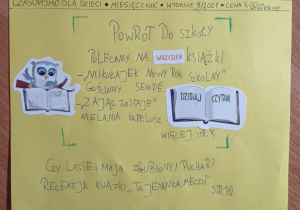 CZASOPISMO DLA DZIECI • MIESIĘCZNIK • WYDANIE 9/2021 • CENA
POWRÓT DO SZKOŁY
POLECAMY NA WRZESIEŃ KSIĄŻKI
- „MIKOŁAJEK NOWY ROK SZKOLNY"
GOŚCINNY SEMPÉ
- „ZAJĄC ZOSTAJE"
MELANIA KAPELUSZ
DZISIAJ CZYTAM
WIĘCEJ STR.
CZY LASSE I MAJA ZGUBIONY PUCHAR?
RECENZJA KSIĄŻKI „TAJEMNICA MECZU" STR 10